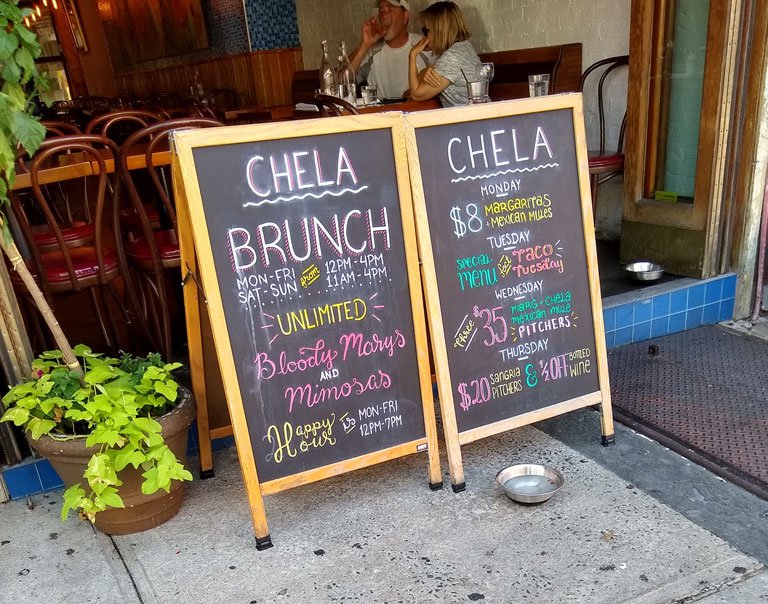 CHELA
BRUNCH
MON-FRI from 12PM-4PM
SAT-SUN 11AM-4PM
UNLIMITED
Bloody Marys
AND
Mimosas
Happy Hour is MON-FRI
12PM-7PM
CHELA
MONDAY
$8 MARGARITAS
+ MEXICAN MULES
TUESDAY
SPECIAL MENU for TACO Tuesday
WEDNESDAY
THREE $35 MARG + CHELA
MEXICAN MULE
PITCHERS
THURSDAY
$20 SANGRIA PITCHERS & ½ OFF BOTTLED WINE